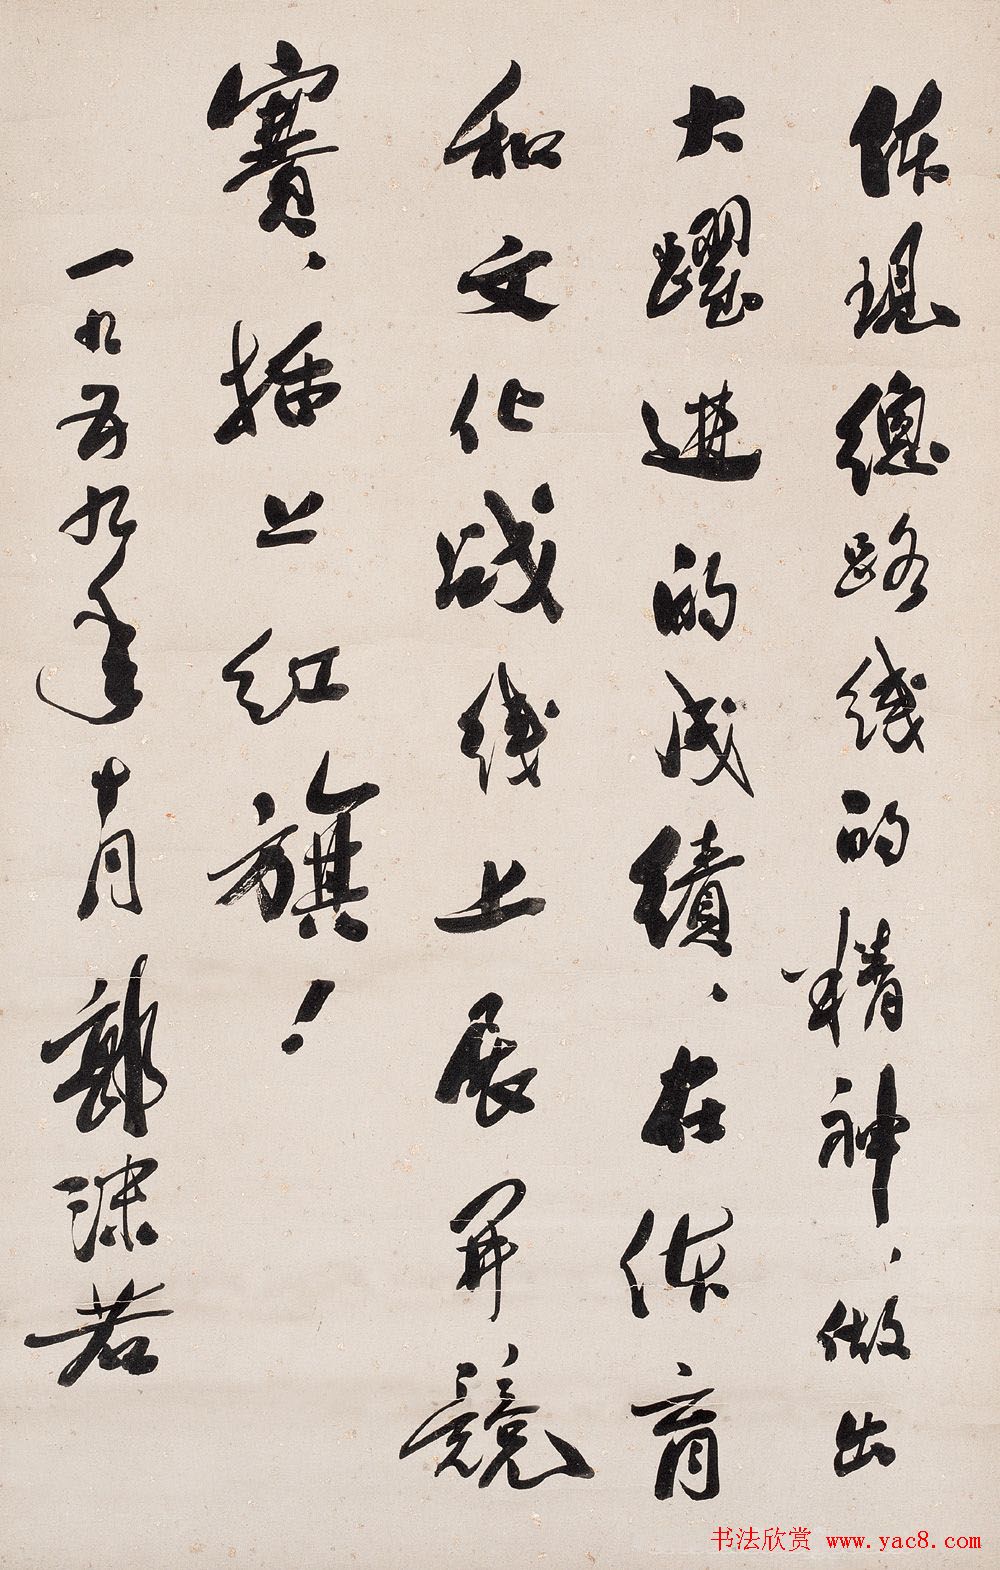 体现總路线的精神、做出
大躍进的成績、在体育
和文化战线上展开競
賽、插上红旗！
一九五九年十月 郭沫若
书法欣赏 www.yac8.com